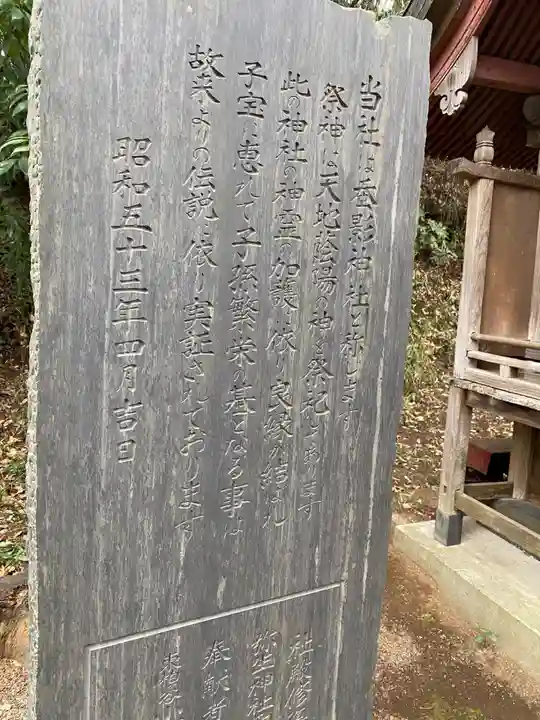 当社は呑影神社と称します
祭神は天地蔭陽の神を祭祀してあります
此の神社の神霊の加護に依り良縁が結ばれ
子宝に恵れて子孫繁栄の基となる事は
故来よりの伝説に依り実証されております
昭和五十三年四月吉日
社殿修
弥生神社
奉献者